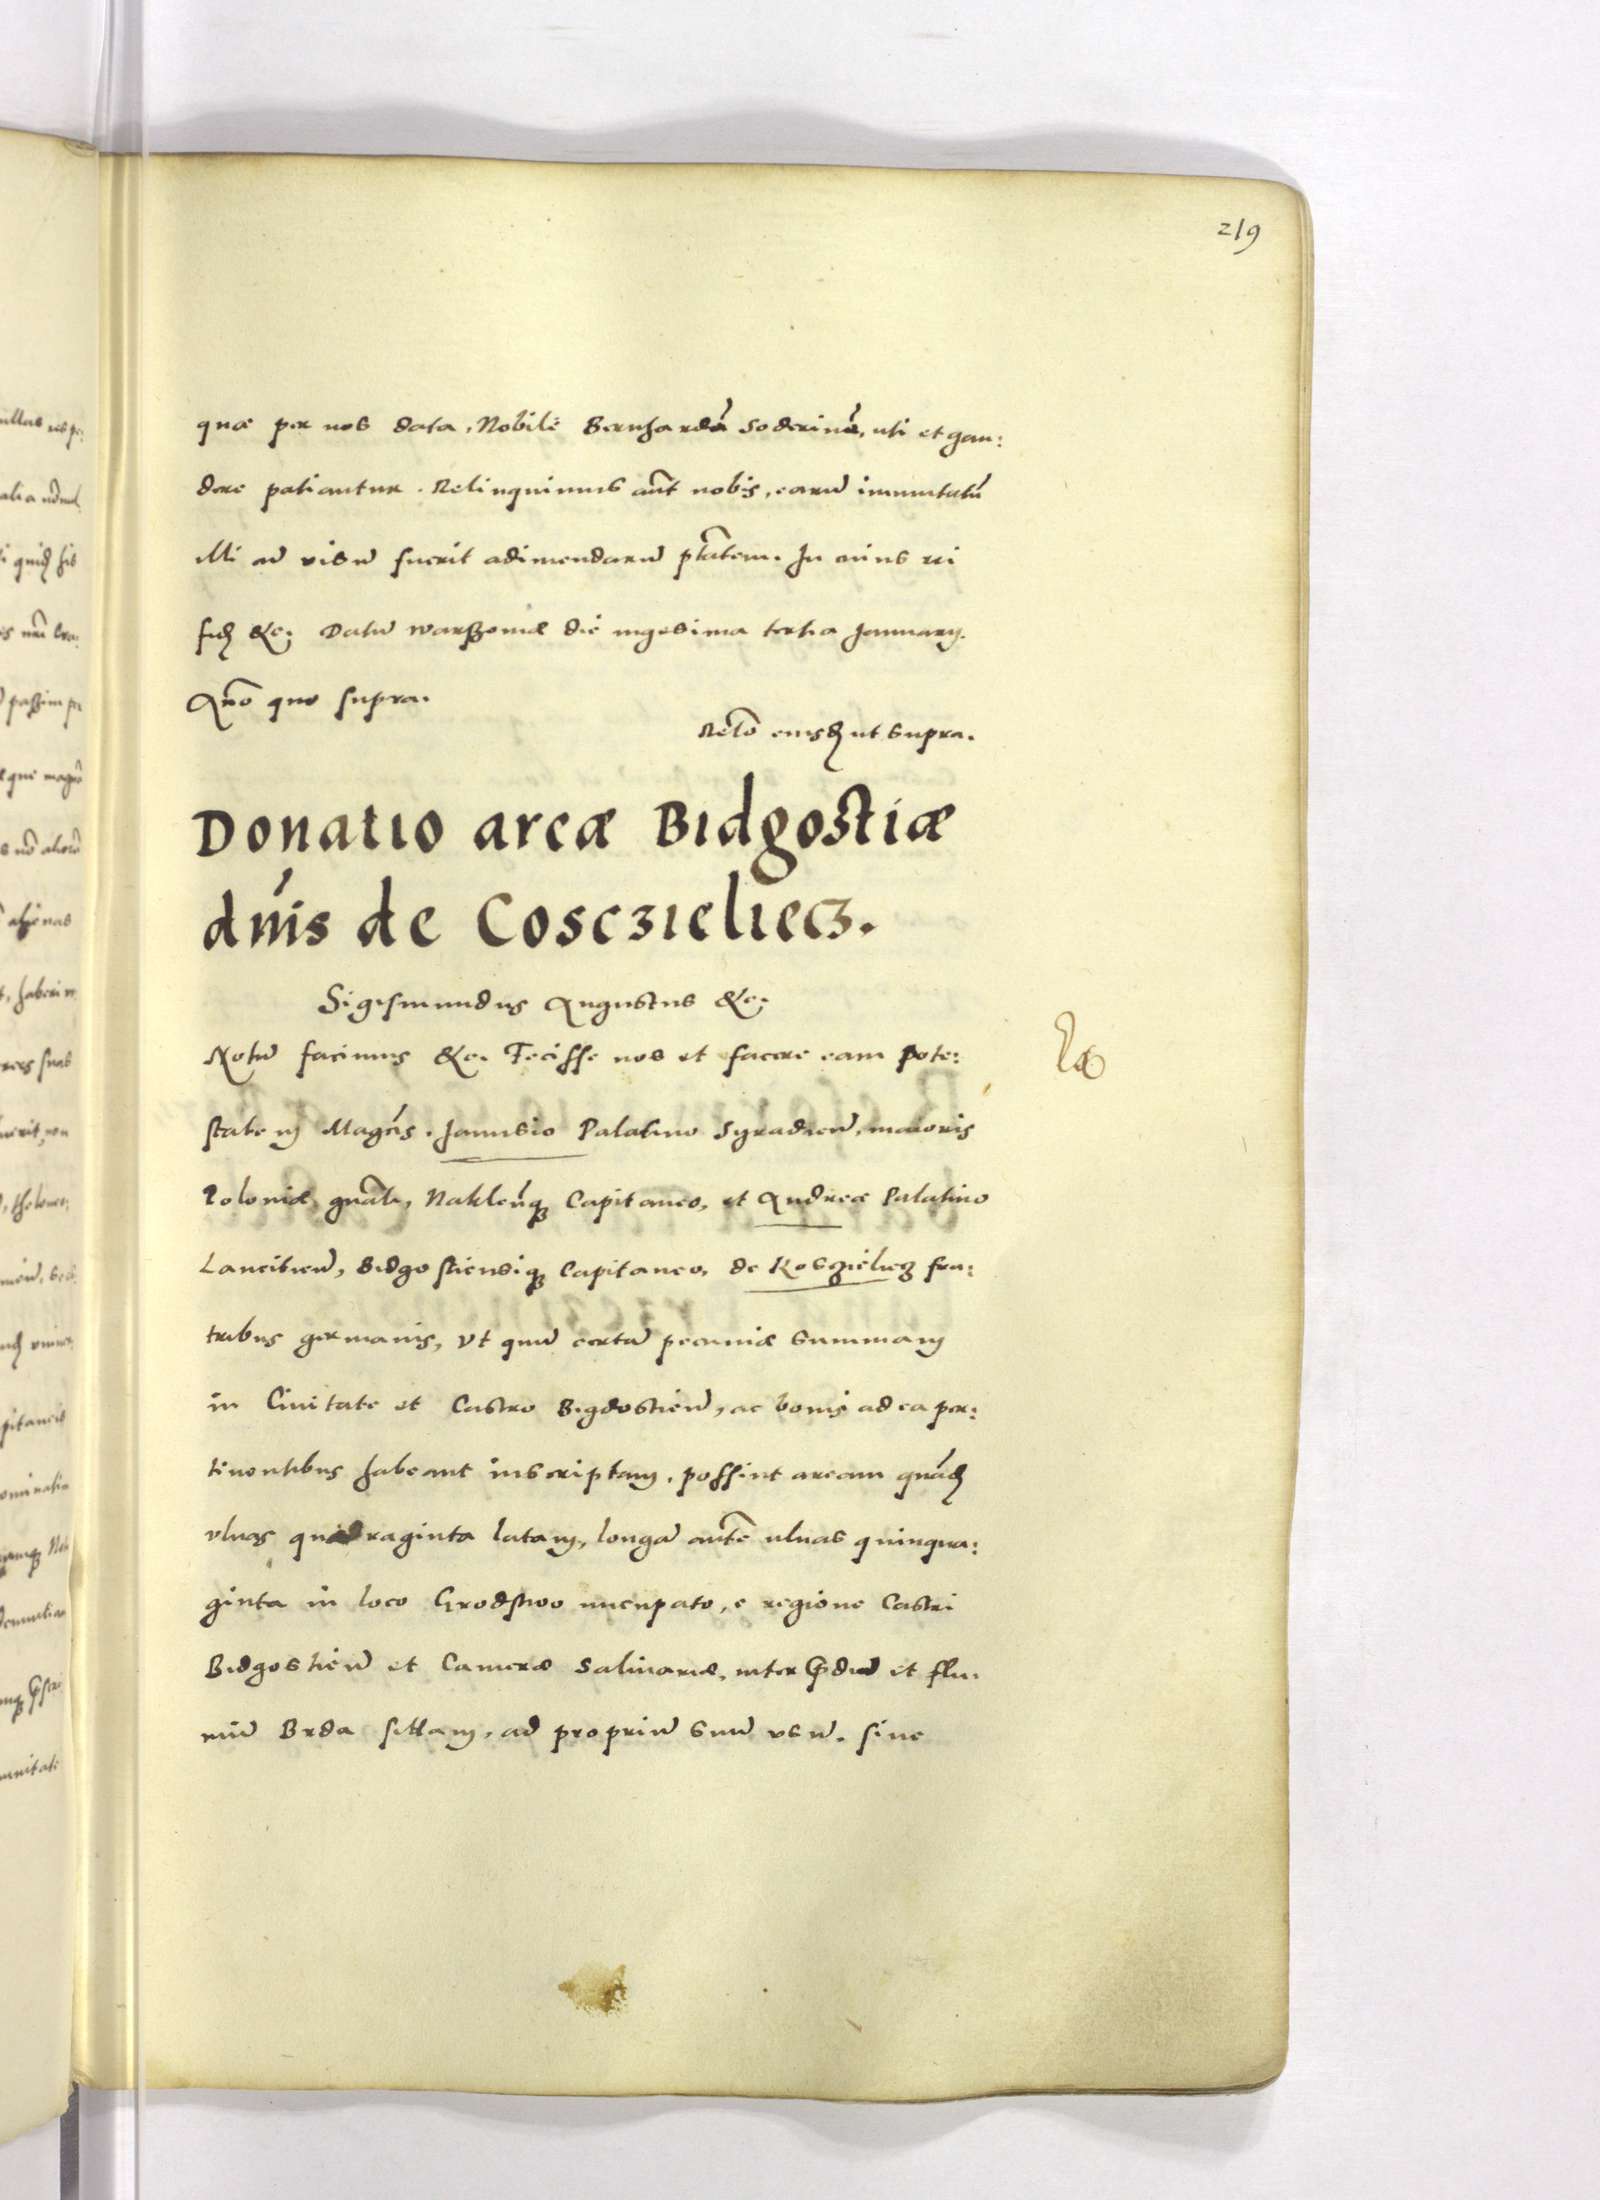 219
quæ per nos data, Nobilē Bernhardū Soderinū, uti et gau:
dere patiantur. Relinquimus aūt nobis, earū immutatū
illi cū visū fuerit adimendarū ptātem. In cuius rei
fidē &c. Datū Warszoviæ die vigesima tertia January.
Año quo supra.
Relō eiusdē ut supra.
Donatio areæ Bidgostiæ
dńis de Cosczieliecz.
Sigismundus Augustus &c.
Notū facimus &c. Fecisse nos et facere eam pote:
statem Magcīs. Janusio Palatino Syradieñ, maioris
Poloniæ gnāli, Nakleñq; Capitaneo, et Andreæ Palatino
Lancicieñ, Bidgostiensiq; Capitaneo, de Kosczielecz fra:
tribus germanis, Vt quū certā pecuniæ summam
in Ciuitate et Castro Bigdostieñ, ac bonis ad ea per:
tinentibus habeant inscriptam, possint aream quādā
vlnas quadraginta latam, longā autē ulnas quinqua:
ginta in loco Grodstwo nuncupato, e regione Castri
Bidgostieñ et Cameræ Salinariæ, inter et flu:
uiū Brda sittam, ad propriū suū vsū. siue